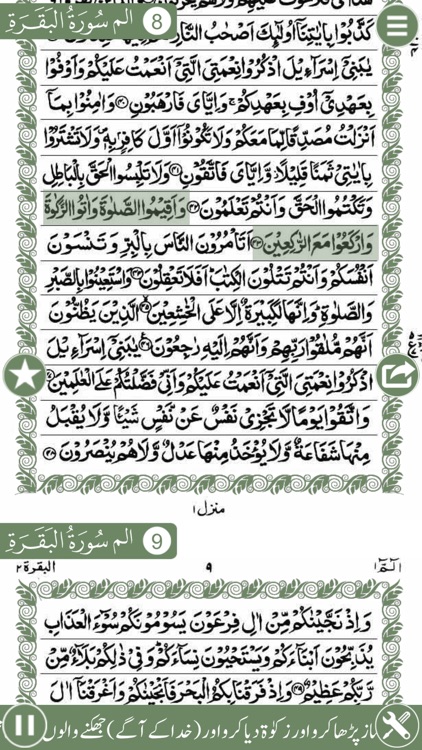 8 الم سُورَةُ البَقَرَةِ
كَذَّبُوْا بِاٰيٰتِنَاۤ اُولٰٓئِكَ اَصْحٰبُ النَّارِ
يٰبَنِيْۤ اِسْرَآءِيْلَ اذْكُرُوْا نِعْمَتِيَ الَّتِيْۤ اَنْعَمْتُ عَلَيْكُمْ وَاَوْفُوْا
بِعَهْدِيْۤ اُوْفِ بِعَهْدِكُمْ ۚ وَاِيَّايَ فَارْهَبُوْنِ ﴿۴۰﴾ وَاٰمِنُوْا بِمَاۤ
اَنْزَلْتُ مُصَدِّقًا لِّمَا مَعَكُمْ وَلَا تَكُوْنُوْۤا اَوَّلَ كَافِرٍۭ بِهٖ ۪ وَلَا تَشْتَرُوْا
بِاٰيٰتِيْ ثَمَنًا قَلِيْلًا ۫ وَّاِيَّايَ فَاتَّقُوْنِ ﴿۴۱﴾ وَلَا تَلْبِسُوا الْحَقَّ بِالْبَاطِلِ
وَتَكْتُمُوا الْحَقَّ وَاَنْتُمْ تَعْلَمُوْنَ ﴿۴۲﴾ وَاَقِيْمُوا الصَّلٰوةَ وَاٰتُوا الزَّكٰوةَ
وَارْكَعُوْا مَعَ الرّٰكِعِيْنَ ﴿۴۳﴾ اَتَاْمُرُوْنَ النَّاسَ بِالْبِرِّ وَتَنْسَوْنَ
اَنْفُسَكُمْ وَاَنْتُمْ تَتْلُوْنَ الْكِتٰبَ ؕ اَفَلَا تَعْقِلُوْنَ ﴿۴۴﴾ وَاسْتَعِيْنُوْا بِالصَّبْرِ
وَالصَّلٰوةِ ؕ وَاِنَّهَا لَكَبِيْرَةٌ اِلَّا عَلَى الْخٰشِعِيْنَ ﴿۴۵﴾ الَّذِيْنَ يَظُنُّوْنَ
اَنَّهُمْ مُّلٰقُوْا رَبِّهِمْ وَاَنَّهُمْ اِلَيْهِ رٰجِعُوْنَ ﴿۴۶﴾ يٰبَنِيْۤ اِسْرَآءِيْلَ
اذْكُرُوْا نِعْمَتِيَ الَّتِيْۤ اَنْعَمْتُ عَلَيْكُمْ وَاَنِّيْ فَضَّلْتُكُمْ عَلَى الْعٰلَمِيْنَ ﴿۴۷﴾
وَاتَّقُوْا يَوْمًا لَّا تَجْزِيْ نَفْسٌ عَنْ نَّفْسٍ شَيْـًٔا وَّلَا يُقْبَلُ
مِنْهَا شَفَاعَةٌ وَّلَا يُؤْخَذُ مِنْهَا عَدْلٌ وَّلَا هُمْ يُنْصَرُوْنَ ﴿۴۸﴾
منزل ١
9 الم سُورَةُ البَقَرَةِ
الٓمّٓ ١ ۹ البقرة ٢
وَاِذْ نَجَّيْنٰكُمْ مِّنْ اٰلِ فِرْعَوْنَ يَسُوْمُوْنَكُمْ سُوْٓءَ الْعَذَابِ
يُذَبِّحُوْنَ اَبْنَآءَكُمْ وَيَسْتَحْيُوْنَ نِسَآءَكُمْ ؕ وَفِيْ ذٰلِكُمْ بَلَآءٌ مِّنْ
رَّبِّكُمْ عَظِيْمٌ ﴿۴۹﴾ وَاِذْ فَرَقْنَا بِكُمُ الْبَحْرَ فَاَنْجَيْنٰكُمْ وَاَغْرَقْنَاۤ اٰلَ
نماز پڑھا کرو اور زکوٰۃ دیا کرو اور (خدا کے آگے) جھکنے والوں